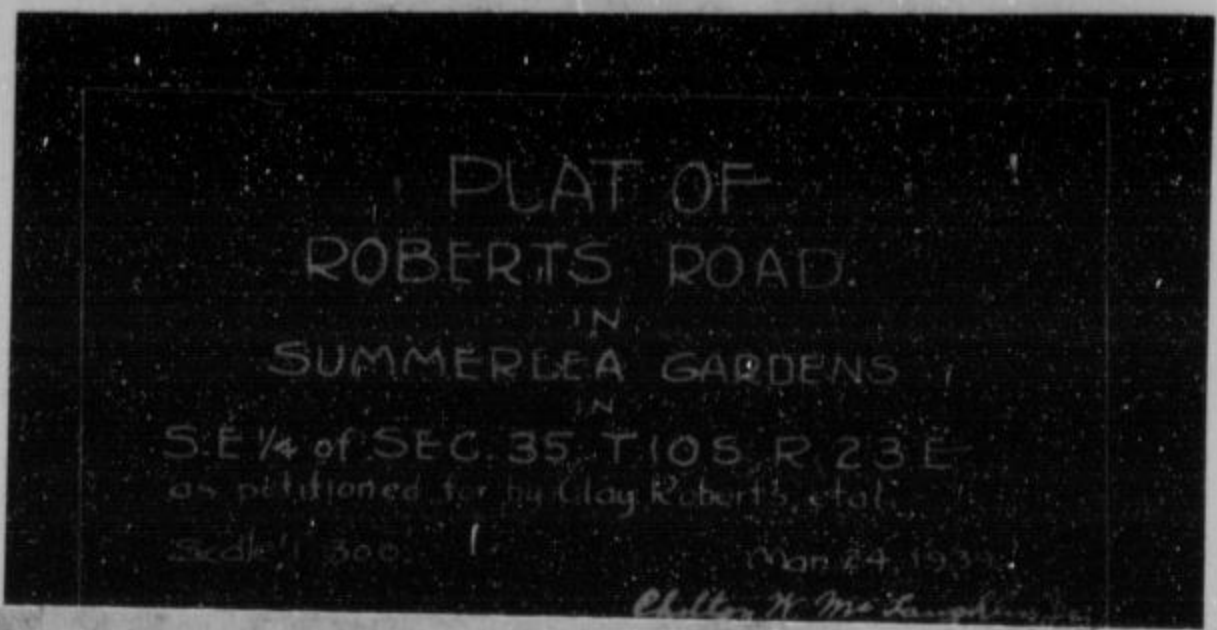 PLAT OF
ROBERTS ROAD.
IN
SUMMERLEA GARDENS
IN
S.E 1/4 of SEC. 35 T.10S. R. 23 E
as petitioned for by Clay Roberts, et al.
Scale 1 300
Mar. 24, 193
Chilton W. McLaughlin